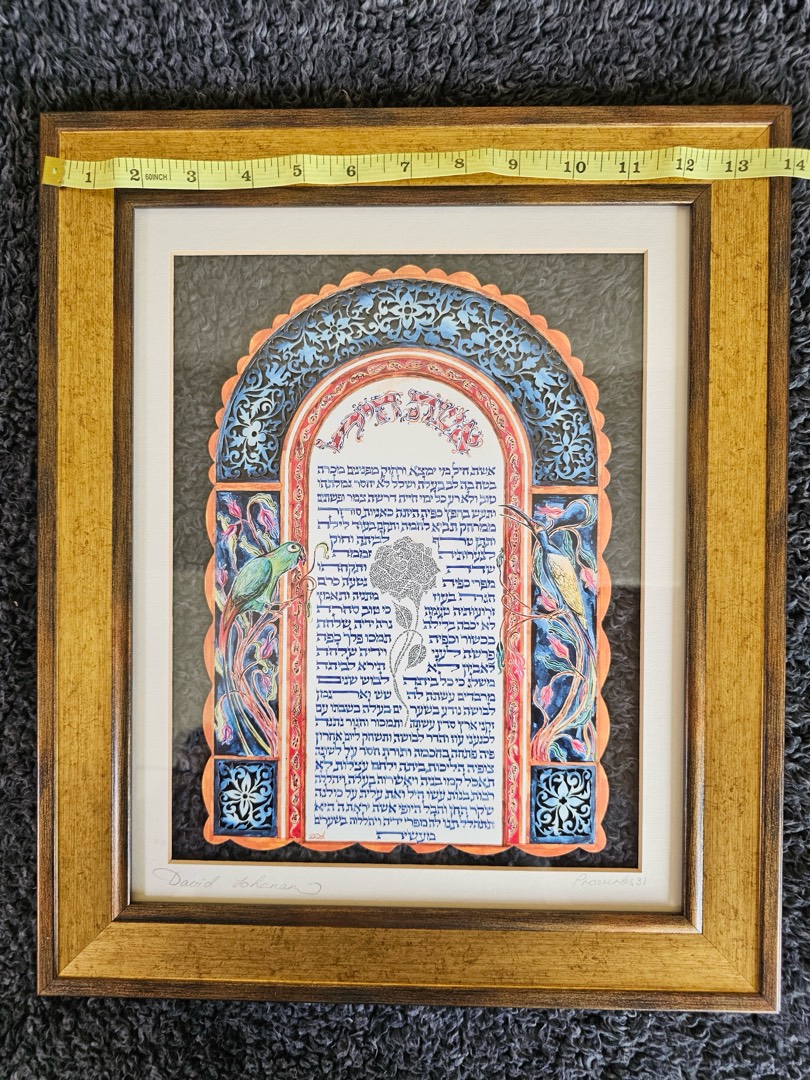 1 2 60INCH 3 4 5 6 7 8 9 10 11 12 13 14
אשת חיל
אשת חיל מי ימצא ורחוק מפנינים מכרה
בטח בה לב בעלה ושלל לא יחסר גמלתהו
טוב ולא רע כל ימי חייה דרשה צמר ופשתים
ותעש בחפץ כפיה היתה כאניות סוחר
ממרחק תביא לחמה ותקם בעוד לילה
ותתן טרף לביתה וחוק
לנערותיה זממה
שדה ותקחהו
מפרי כפיה נטעה כרם
חגרה בעוז מתניה ותאמץ
זרועותיה טעמה כי טוב סחרה
לא יכבה בלילה נרה ידיה שלחה
בכשור וכפיה תמכו פלך כפה
פרשה לעני וידיה שלחה
לאביון לא תירא לביתה
משלג כי כל ביתה לבוש שנים
מרבדים עשתה לה שש וארגמן
לבושה נודע בשערים בעלה בשבתו עם
זקני ארץ סדין עשתה ותמכור וחגור נתנה
לכנעני עוז והדר לבושה ותשחק ליום אחרון
פיה פתחה בחכמה ותורת חסד על לשונה
צופיה הליכות ביתה ולחם עצלות לא
תאכל קמו בניה ויאשרוה בעלה ויהללה
רבות בנות עשו חיל ואת עלית על כולנה
שקר החן והבל היופי אשה יראת ה' היא
תתהלל תנו לה מפרי ידיה ויהללוה בשערים
מעשיה
David Proverbs 31